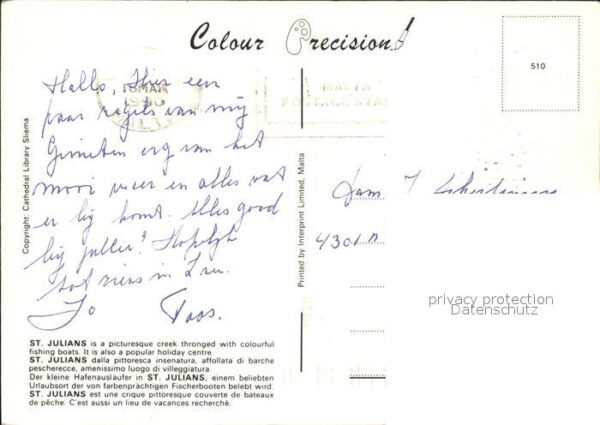 Colour Precision
Hallo, Hier een
paar regels van mij
Genieten erg van het
mooi weer en alles wat
er bij komt. Alles good
bij jullie? Hopelijk
tot ziens in
Jo Toos.
18 MAR
MALTA
510
Fam
4301
privacy protection
Datenschutz
Copyright: Cathedral Library Sliema
Printed by Interprint Limited, Malta
ST. JULIANS is a picturesque creek thronged with colourful
fishing boats. It is also a popular holiday centre.
ST. JULIANS dalla pittoresca insenatura, affollata di barche
pescherecce, amenissimo luogo di villeggiatura.
Der kleine Hafenausläufer in ST. JULIANS, einem beliebten
Urlaubsort der von farbenprächtigen Fischerbooten belebt wird.
ST. JULIANS est une crique pittoresque couverte de bateaux
de pêche. C'est aussi un lieu de vacances recherché.